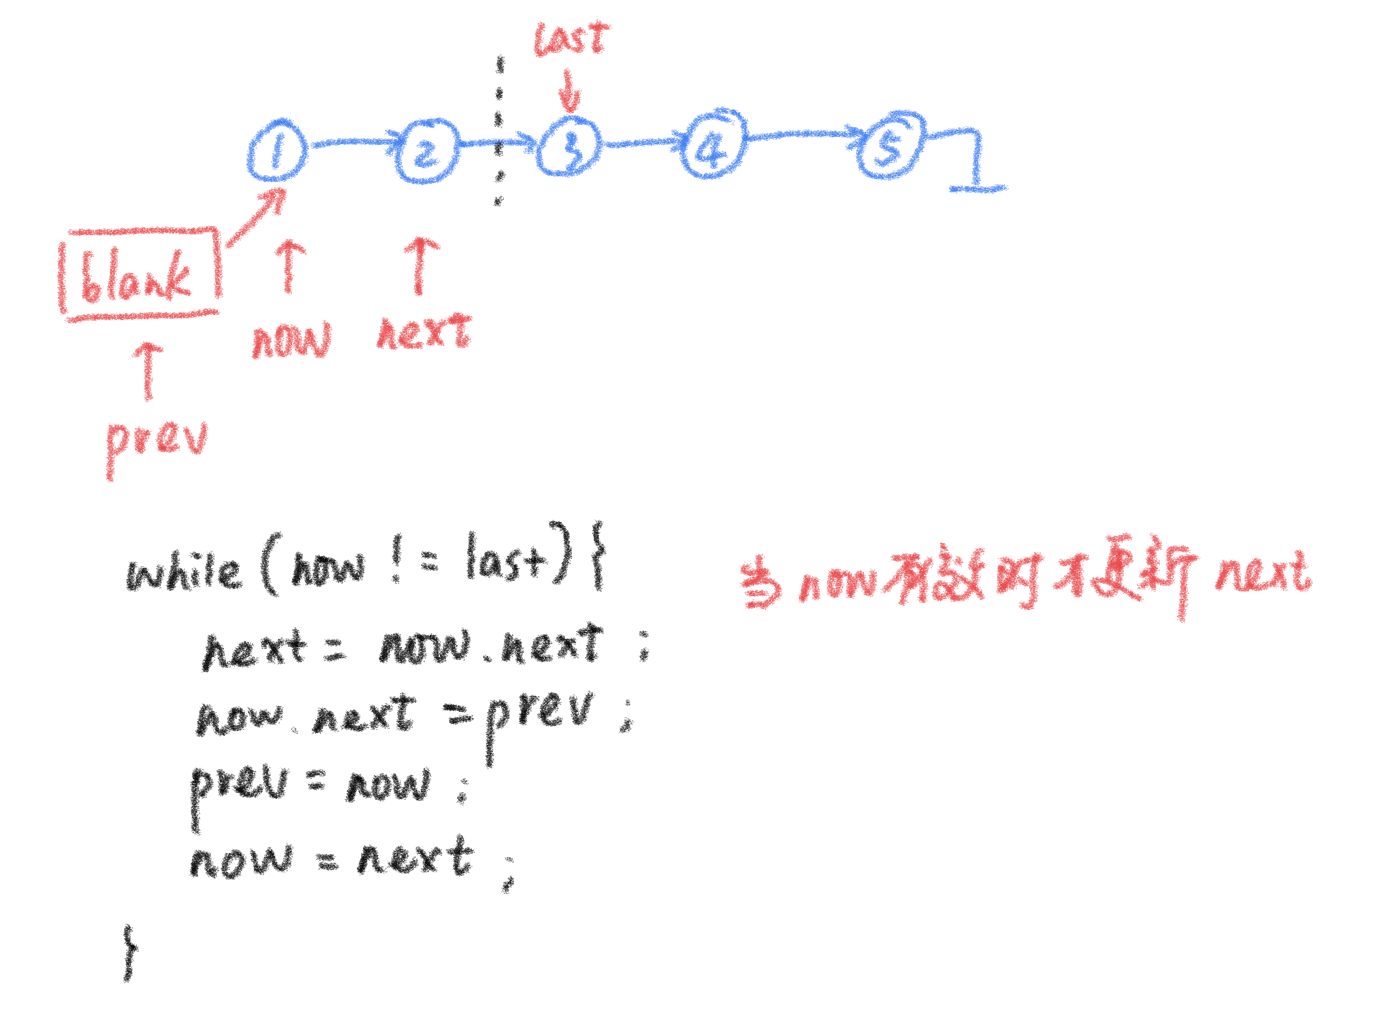 last
1 2 3 4 5
blank
now next
prev
while (now != last) {
next = now.next ;
now.next = prev ;
prev = now ;
now = next ;
}
当 now 有效时才更新 next